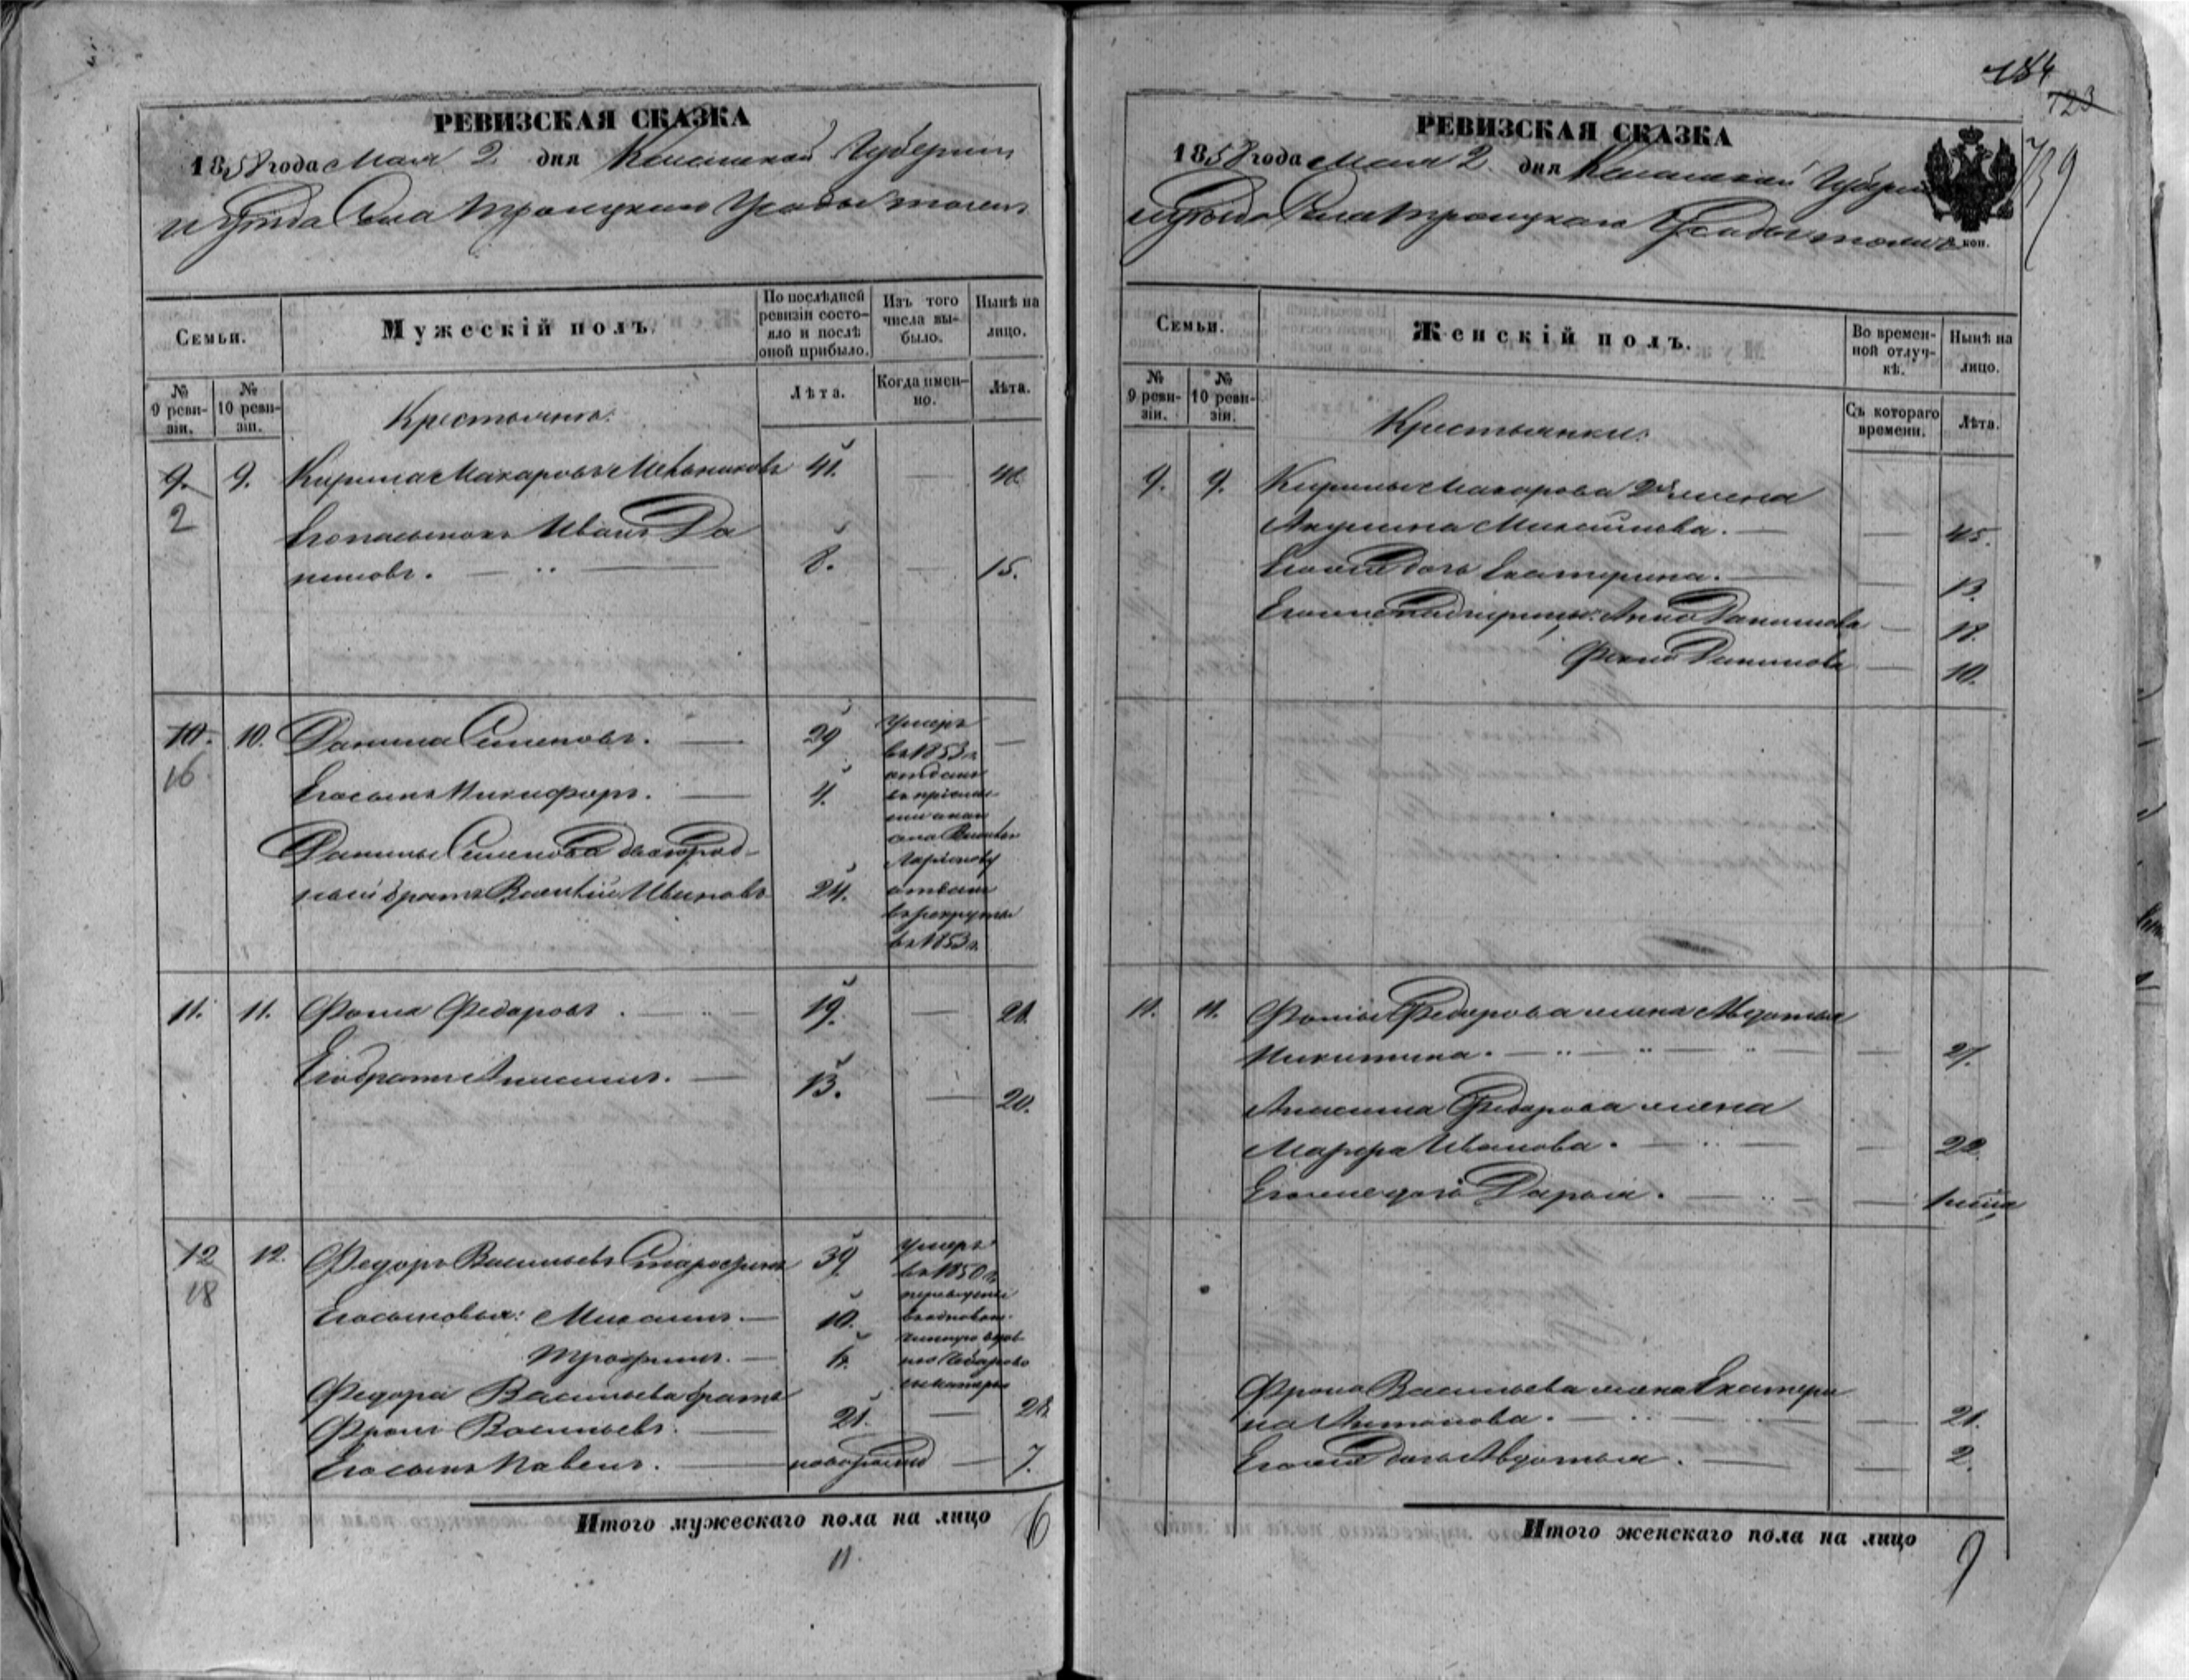 РЕВИЗСКАЯ СКАЗКА
1858 года Мая 2 дня Губернии
и Уѣзда Села Троицкаго Усадьбы тожъ
Семьи.
Мужескій полъ.
По послѣдней ревизіи состояло и послѣ оной прибыло.
Изъ того числа выбыло.
Нынѣ на лицо.
№ 9 ревизіи.
№ 10 ревизіи.
Крестьяне.
Лѣта.
Когда именно.
Лѣта.
9. 9. Кирила Макаровъ Мельниковъ 41. —
2
Его пасынокъ Иванъ Да
ниловъ. — 8. — 15.
10. 10. Данила Семеновъ. — 29 умеръ въ 1853 г. —
16
Его сынъ Никифоръ. — 4. отданъ
Данилы Семенова двоюрод-
ный братъ Василій Ивановъ 24. отданъ въ рекруты въ 1853 г.
11. 11. Фома Федоровъ. — 19. —
Его братъ Анисимъ. — 13. — 20.
12 12. Федоръ Васильевъ 39 умеръ въ 1850 г.
18
Его сыновья: Михаилъ. — 10.
Трофимъ. — 6.
Федора Васильева братъ
Фролъ Васильевъ. — 21. — 28.
Его сынъ Павелъ. — новорожд — 7.
Итого мужескаго пола на лицо 6
11.
184
123
РЕВИЗСКАЯ СКАЗКА
1858 года Мая 2 дня Губерніи
и Уѣзда Села Троицкаго Усадьбы тожъ
коп.
Семьи.
Женскій полъ.
Во временной отлучкѣ.
Нынѣ на лицо.
№ 9 ревизіи.
№ 10 ревизіи.
Крестьянки.
Съ котораго времени.
Лѣта.
9. 9. Кирилы Макарова 2я жена
Акулина Михайлова. — — 45.
Его дочь Екатерина. — — 13.
Его падчерицы: Анна Данилова — 18.
Данилова — 10.
11. 11. Фомы Федорова жена Авдотья
Никитина. — — 27.
Анисима Федорова жена
Марфа Иванова. — — 22.
Его же дочь Дарья. — —
Фрола Васильева жена Екатери
на Антонова. — — 21.
Его дочь Авдотья. — — 2.
Итого женскаго пола на лицо 9